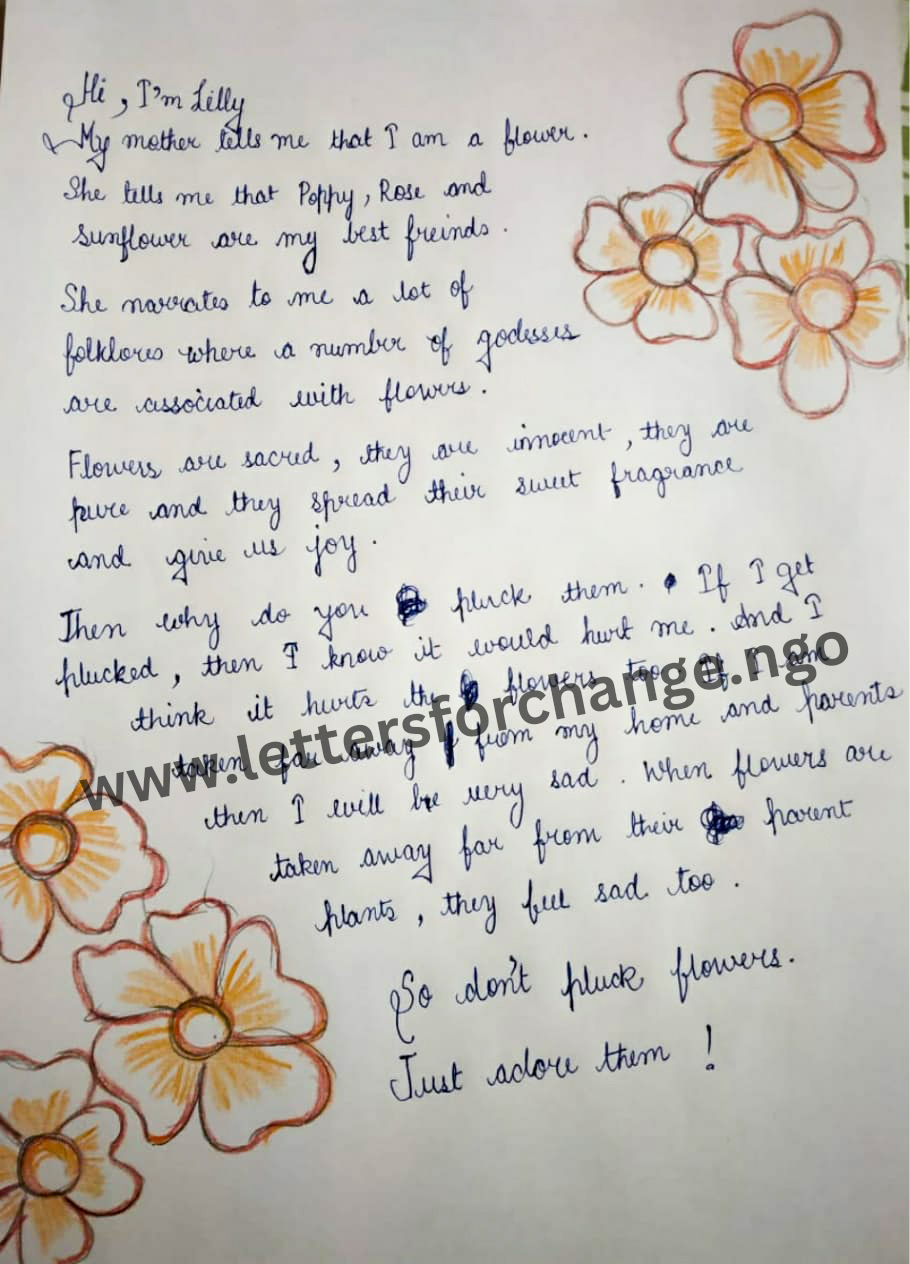 Hi, I'm Lilly
My mother tells me that I am a flower.
She tells me that Poppy, Rose and
sunflower are my best freinds.
She narrates to me a lot of
folklores where a number of godesses
are associated with flowers.
Flowers are sacred, they are innocent, they are
pure and they spread their sweet fragrance
and give us joy.
Then why do you pluck them. If I get
plucked, then I know it would hurt me. And I
think it hurts the flowers too. If I am
taken far away from my home and parents
www.lettersforchange.ngo
then I will be very sad. When flowers are
taken away far from their parent
plants, they feel sad too.
So don't pluck flowers.
Just adore them!